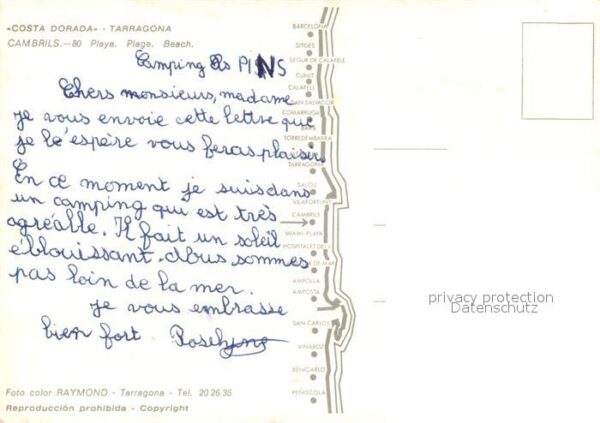 «COSTA DORADA» - TARRAGONA
CAMBRILS.—80 Playa. Plage. Beach.
Camping PINS
Chers monsieurs, madame
je vous envoie cette lettre que
je l'espeire vous feras plaisir.
En ce moment je suis dans
un camping qui est très
agréable. Il fait un soleil
éblouissant. Nous sommes
pas loin de la mer.
je vous embrasse
bien fort
BARCELONA
SITGES
SEGUR DE CALAFELL
CUNIT
CALAFELL
SAN SALVADOR
COMARRUGA
TORREDEMBARRA
TARRAGONA
SALOU
VILAFORTUNY
CAMBRILS
MIAMI-PLAYA
HOSPITALET DEL
DE MAR
AMPOLLA
AMPOSTA
SAN CARLOS
VINAROZ
BENICARLO
PEÑISCOLA
privacy protection
Datenschutz
Foto color RAYMOND - Tarragona - Tel. 20 26 35
Reproducción prohibida - Copyright